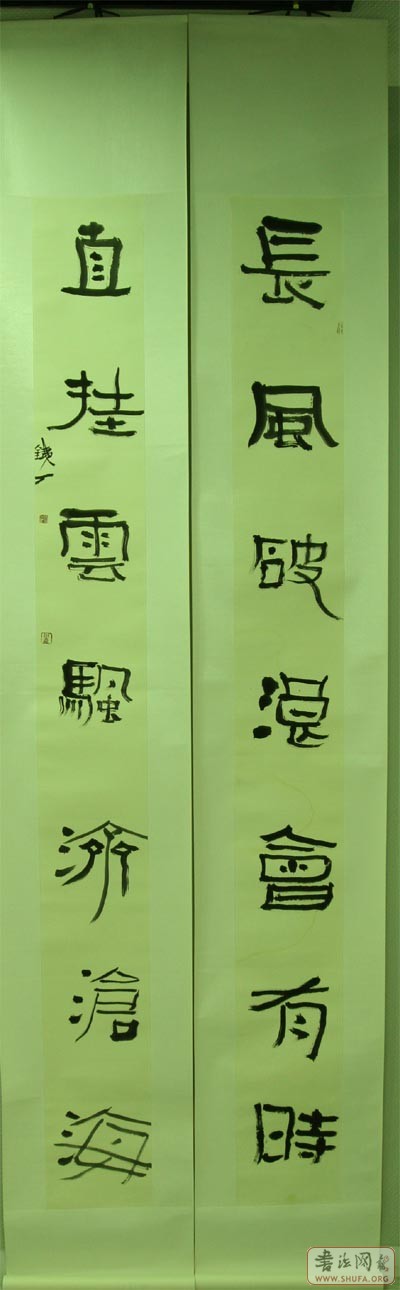 長風破浪會有時
直挂雲颿濟滄海
书法网
WWW.SHUFA.ORG